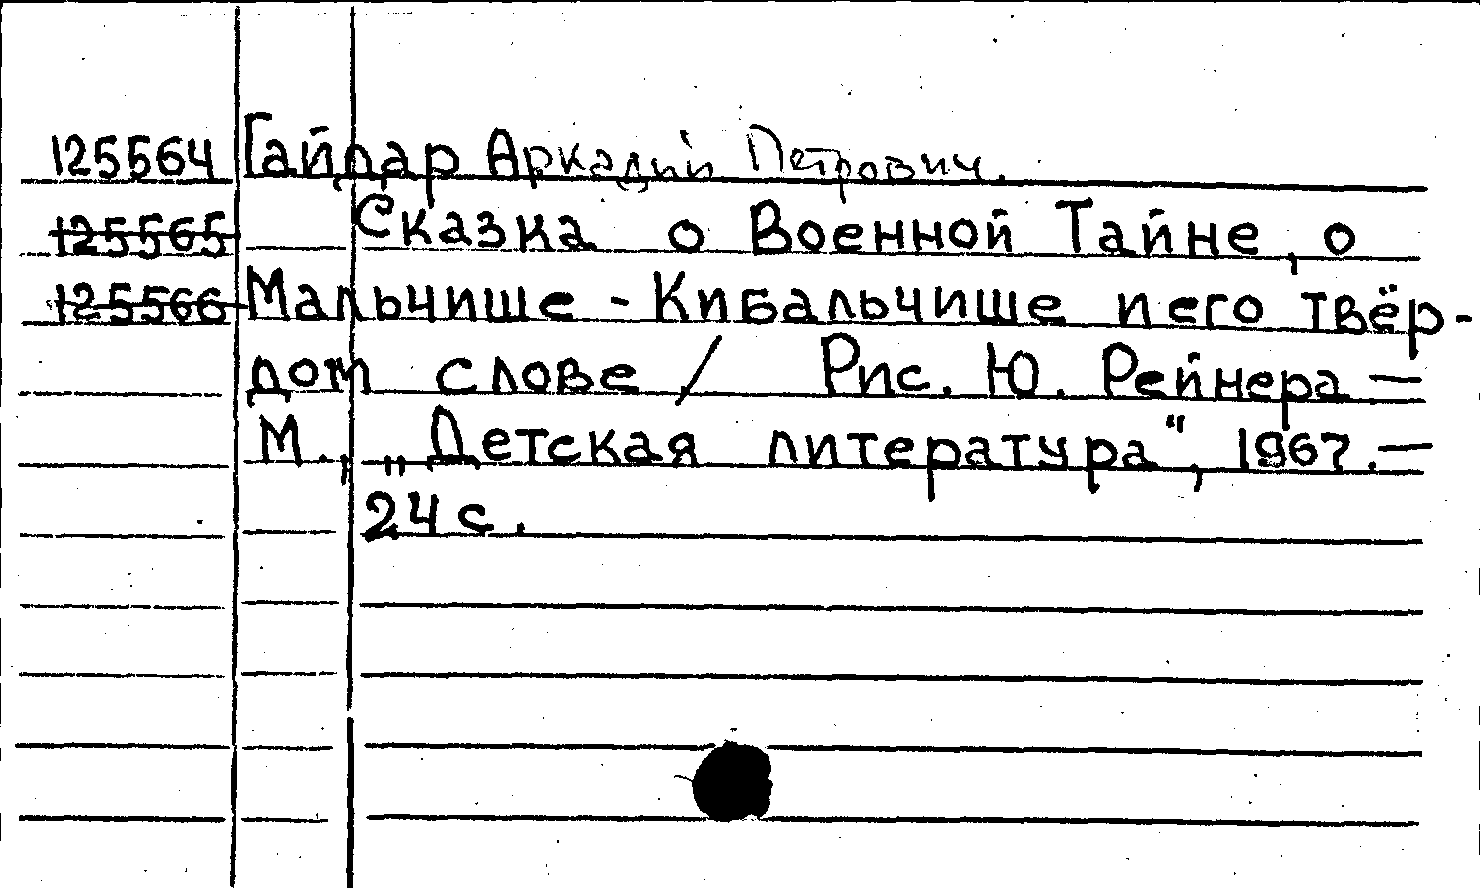 125564 Гайдар Аркадий Петрович.
125565 Сказка о Военной Тайне, о
125566 Мальчише - Кибальчише и его твёр-
дом слове / Рис. Ю. Рейнера —
М., „Детская литература", 1967. —
24 с.